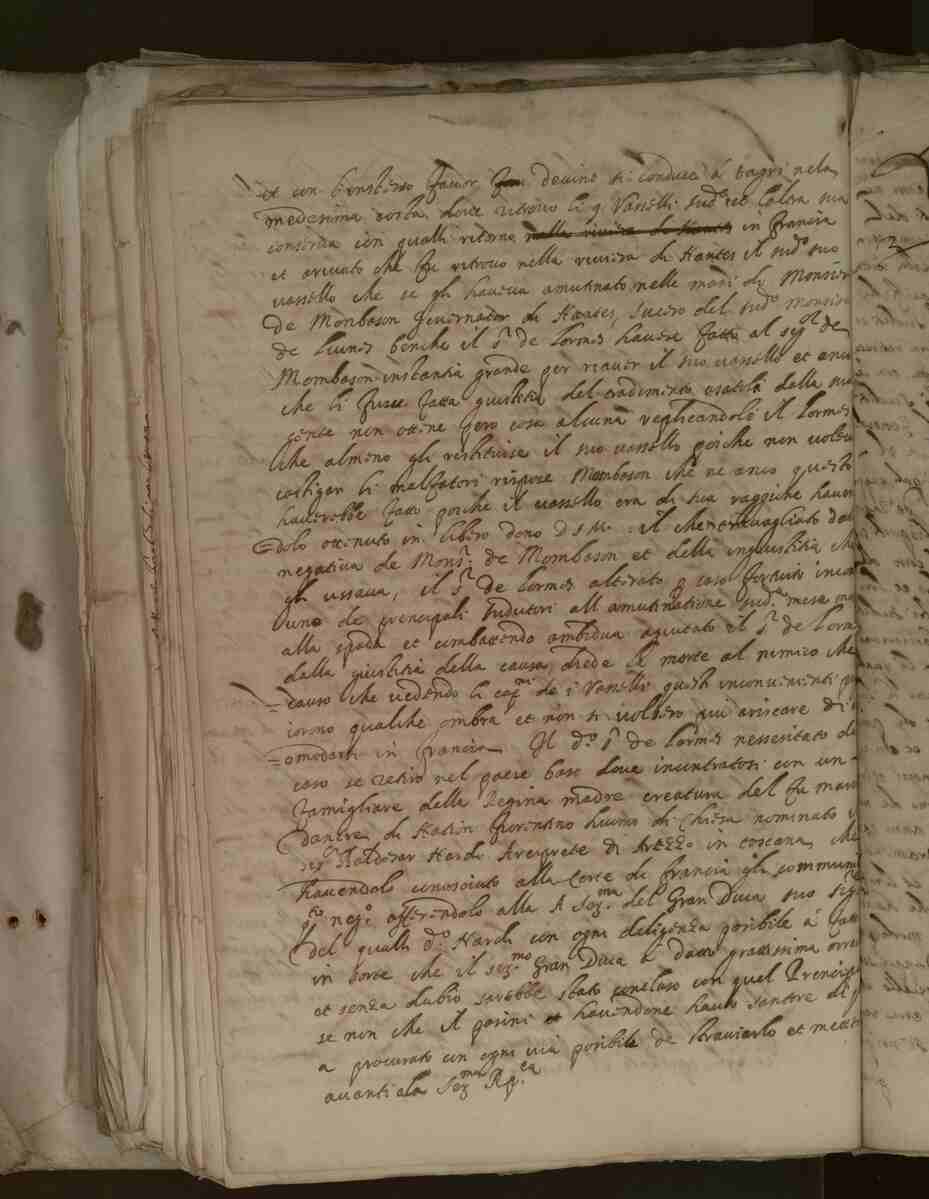 et con l'onsteso favor devino si conduce à tagri nela
medesima costa dove ritrovo li Vasselli sud.ti et l'altra sua
conserva con qualli ritornò nella riviera de Nantes in Francia
et arivato che fu ritrovo nella riviera di Nantes il sud.o suo
vassello che se gli haveva amutinato nelle mani di Monsieur
De Monbason Guvernator di Nantes, sucero del sud.o monsieur
de luines benche il s.r de lormes havese fatto al sig.r de
Mombason instantia grande per riaver il suo vassello et anco
che li fusse fatta giustitia del tradimento usatoli dalla sua
gente non otene pero cosa alcuna replicandoli il lormes
che almeno gli restituise il suo vassello poiche non voleva
castigar li malfatori rispose Mombason che ne anco questo
haverebbe fatto poiche il vassello era di sua raggione haven
dolo ottenuto in libero dono il che travagliato dal
negativa de Mons.r de Mombason et della ingiustitia che
gli ussava, il s.r de lormes alterato p caso fortuito incon
uno de principali indutori all amutinatione sud.a mese ma
alla spada et combattendo ambidua agiutato il s.r de lorm
dalla giustitia della causa, diede la morte al nemico che
causo che vedendo li cap.ni de i Vasselli questi inconvenienti
qualche ombra et non si volsero più ariscare di
omodarsi in francia Il d.o s.r de lormes nessesitato dal
caso se retirò nel paese baso dove incontratosi con un
famigliare della Regina madre creatura del fu mares
dancre di Nation fiorentino huomo di Chiesa nominato il
sig.r Baldesar Nardi Areiprete di Arezzo in toscana, che
havendolo conosciuto alla Corte di francia gli communi
q.to neg.o offerendolo alla A Ser.ma del Gran Duca suo sig.re
Del qualli d.o Nardi con ogni deligenza posibile à fatto
in forse che il ser.mo Gran Duca à dato gratissima orec
et senza dubio sarebbe stato concluso con quel Prencipe
se non che il pasini havendone havto sentore di
a procurato con ogni via posibile de straviarlo et mett
avanti ala Ser.ma Rp.ca